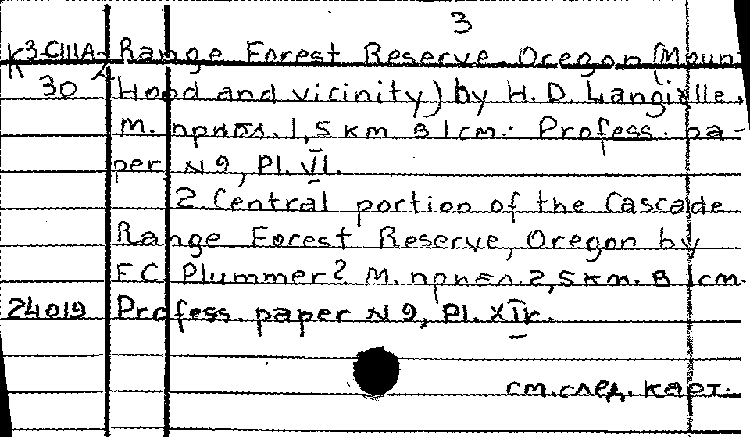 3
К3-США- Range Forest Reserve, Oregon (Moun
30 Hood and vicinity) by H. D. Langille.
М. прибл. 1,5 км в 1 см. Profess. pa-
per N 9, Pl. VI.
2. Central portion of the Cascade
Range Forest Reserve, Oregon by
F.C. Plummer? М. прибл. 2,5 км. в 1 см.
24019 Profess. paper N 9, Pl.
см. след. карт.